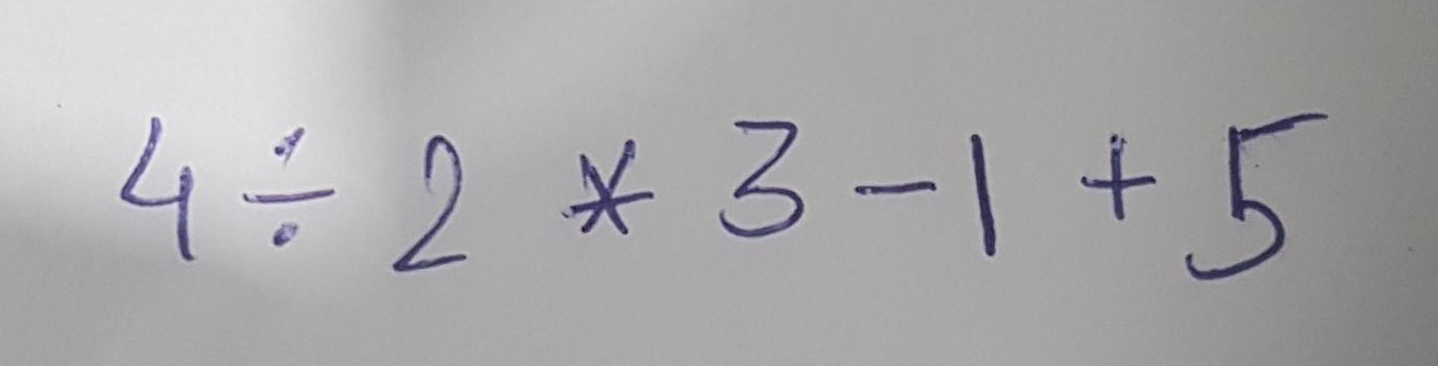 4 ÷ 2 * 3 - 1 + 5